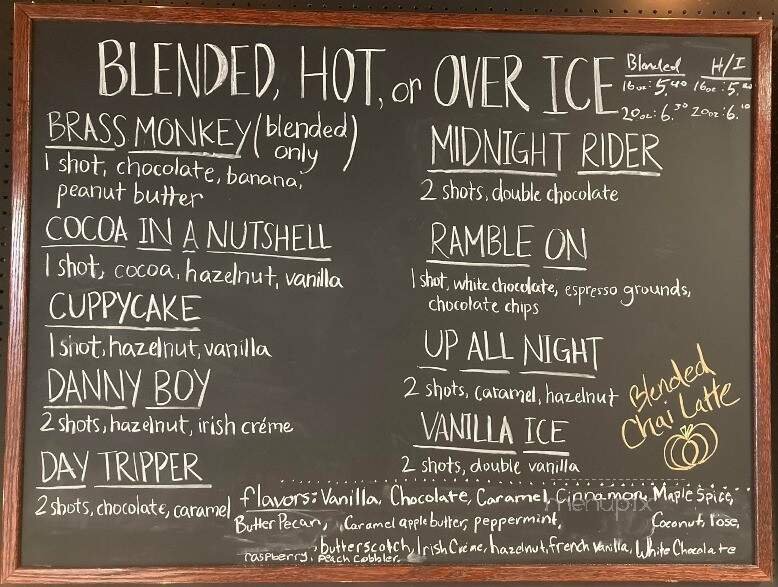 BLENDED, HOT, or OVER ICE
Blended H/I
16oz: 5.40 16oz: 5.
20oz: 6.30 20oz: 6.10
BRASS MONKEY (blended only)
1 shot, chocolate, banana,
peanut butter
COCOA IN A NUTSHELL
1 shot, cocoa, hazelnut, vanilla
CUPPYCAKE
1 shot, hazelnut, vanilla
DANNY BOY
2 shots, hazelnut, irish créme
DAY TRIPPER
2 shots, chocolate, caramel
MIDNIGHT RIDER
2 shots, double chocolate
RAMBLE ON
1 shot, white chocolate, espresso grounds,
chocolate chips
UP ALL NIGHT
2 shots, caramel, hazelnut
VANILLA ICE
2 shots, double vanilla
Blended
Chai Latte
flavors: Vanilla, Chocolate, Caramel, Cinnamon, Maple Spice,
Butter Pecan, Caramel apple butter, peppermint, Coconut, rose,
butterscotch, Irish Créme, hazelnut, french vanilla, White Chocolate
raspberry, Peach Cobbler.
menupix